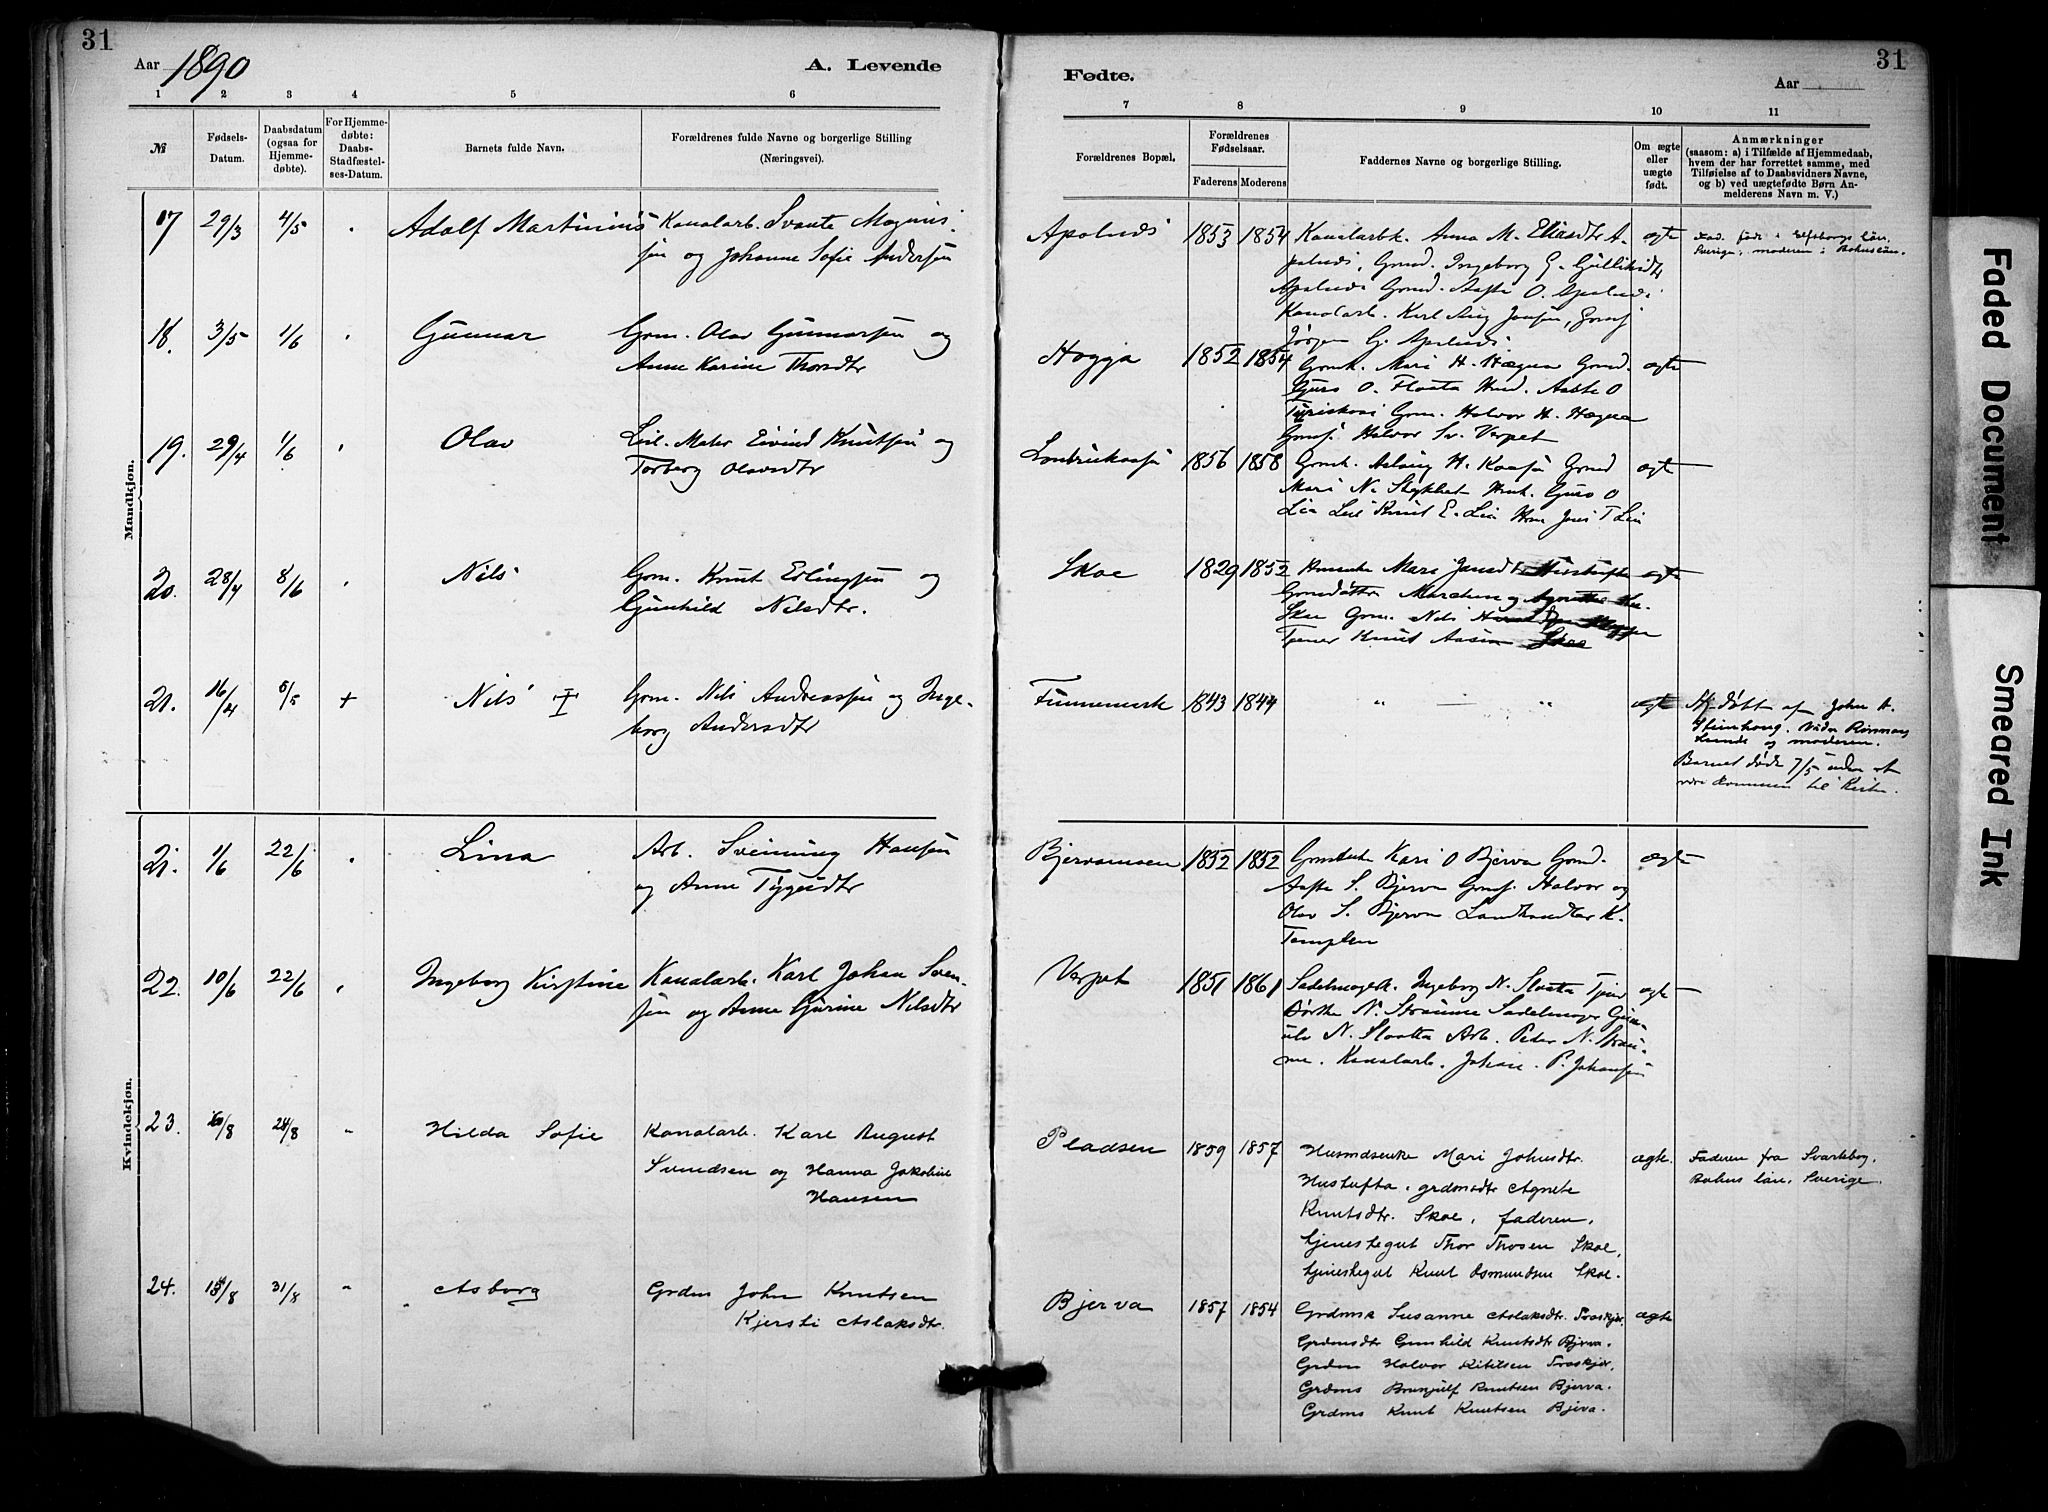 31
31
Aar 1890
A. Levende
Fødte.
Aar
1 2 3 4 5 6
7 8 9 10 11
№
Fødsels-
Datum.
Daabsdatum
(ogsaa for
Hjemme-
døbte).
For Hjemme-
døbte:
Daabs-
Stadfæstel-
ses-Datum.
Barnets fulde Navn.
Forældrenes fulde Navne og borgerlige Stilling
(Næringsvei).
Forældrenes Bopæl.
Forældrenes
Fødselsaar.
Faderens Moderens
Faddernes Navne og borgerlige Stilling.
Om ægte
eller
uægte
født.
Anmærkninger
(saasom: a) i Tilfælde af Hjemmedaab,
hvem der har forrettet samme, med
Tilføielse af to Daabsvidners Navne,
og b) ved uægtefødte Børn An-
melderens Navn m. V.)
Mandkjøn.
17 29/3 4/5 Adolf Martinius Kanalarb. Svante Magnus-
sen og Johanne Sofie Andersen
Apalnes 1853 1854 Kanalarbk. Anna M. Eliasdtr A- ægte
Grmd. Ingeborg G.
Apalnes Grmd. Aaste O. Apalnes
Kanalarb. Karl Aug Jansen, Grms
Jørgen G. Apalnes
Fad. født i Elfsborgs län,
Sverige, moderen i Bohuslän.
18. 3/5 1/6 Gunnar Grm. Olav Gunnarsen og
Anne Karine Thorsdtr
Hogga 1852 1854 Grmk. Mari H. Hægna Grmd. ægte
Guro O. Flaata Hmd. Aaste O
Grm. Halvor H. Hægna
Grms. Halvor Sv. Verpet
19. 29/4 1/6 Olav Leil. Mater Eivind Knutsen og
Torberg Olavsdtr
1856 1858 Grmk. Aslaug H. Kaasa Grmd ægte
Mari N. Hmk. Guro O
Lia Leil Knut E. Lia Hm Jens T Lia
20. 28/4 8/6 Nils Grm. Knut Erlingsen og
Gunhild Nilsdtr.
Skoe 1829 1852 Mari Jonsdtr Hustufta ægte
Grmdøttre Marchen og Agnethe
Skoe Grm. Nils
Tjener Knut Aasm Skoe
21. 16/4 5/5 + Nils Grm. Nils Andreassen og Inge-
borg Andersdtr
Finnemark 1843 1844 " — " ægte Hj. døbt af John A.
moderen.
Barnet døde 7/5 uden at
være kommen til Kirke.
Kvindekjøn.
21. 1/6 22/6 Lina Arb. Sveinung Hansen
og Anne Tygesdtr
Bjervamoen 1852 1852 Kari O Bjerva Grmd. ægte
Aaste S. Bjerva Grms. Halvor og
Olav S. Bjerva Landhandler K.
Templen
22. 10/6 22/6 Ingeborg Kirstine Kanalarb. Karl Johan Sven-
sen og Anne Gurine Nilsdtr
Verpet 1851 1861 Sadelmagerk. Ingeborg N. Slaatta Tjen. ægte
Dorthe N. Straume Sadelmager Gun-
ulv N. Slaatta Arb. Peder N. Strau-
me. Kanalarb. Johan P. Johansen
23. 24/8 Hilda Sofie Kanalarb. Karl August
Svendsen og Hanna Jakobine
Hansen
Pladsen 1859 1857 Husmdsenke Mari Johnsdtr. ægte.
Hustufta. grdmsdtr Agnete
Knutsdtr. Skoe, faderen,
tjenestegut Thor Thosen Skoe,
tjenestegut Knut Asmundsen Skoe.
Faderen fra Svarteborg,
Bohus län, Sverige.
24. 31/8 Asborg Grdm John Knutsen
Kjersti Aslaksdtr.
Bjerva 1857 1854 Grdmsk Susanne Aslaksdtr. Traskjær. ægte
Grdmsdtr Gunhild Knutsdtr Bjerva.
Grdm Halvor Kittilsen Traskjær.
Grdms Brynjulf Knutsen Bjerva.
Grdms Knut Knutsen Bjerva.
Faded Document
Smeared Ink